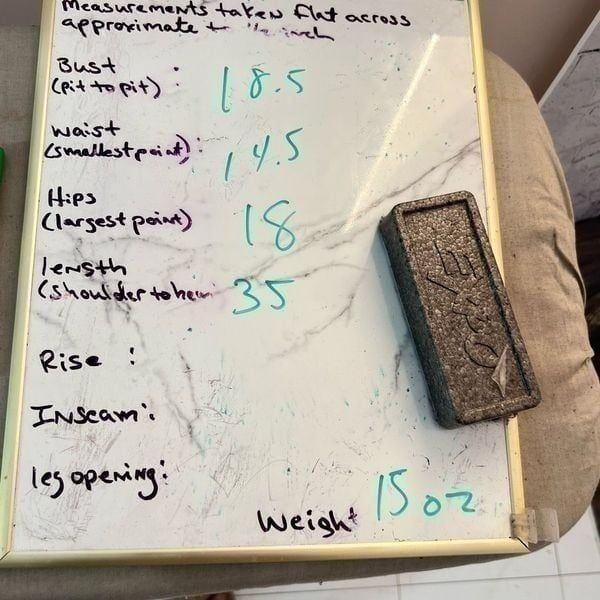 Measurements taken flat across
approximate inch
Bust
(pit to pit) : 18.5
Waist
(smallest point): 14.5
Hips
(largest point) 18
length
(shoulder to hem 35
Rise :
Inseam:
leg opening:
Weight 15 oz